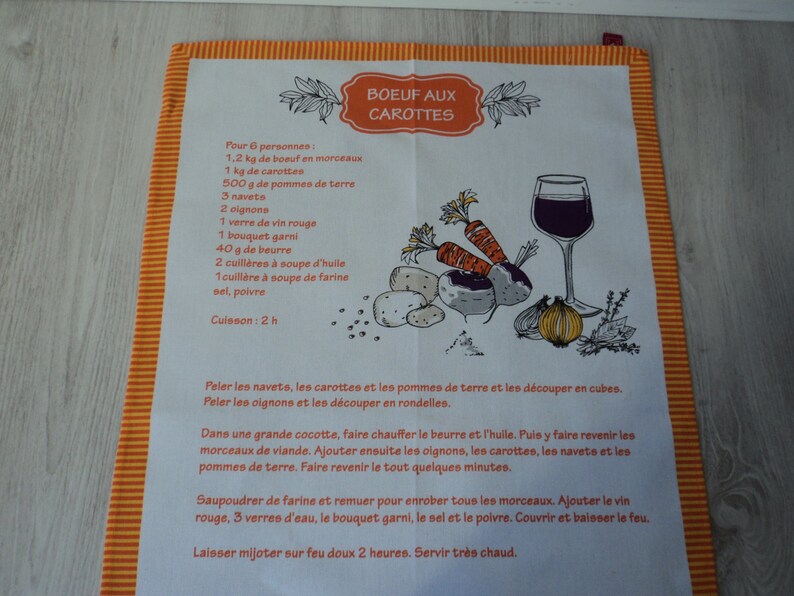 BOEUF AUX
CAROTTES
Pour 6 personnes :
1,2 kg de boeuf en morceaux
1 kg de carottes
500 g de pommes de terre
3 navets
2 oignons
1 verre de vin rouge
1 bouquet garni
40 g de beurre
2 cuillères à soupe d'huile
1 cuillère à soupe de farine
sel, poivre
Cuisson : 2 h
Peler les navets, les carottes et les pommes de terre et les découper en cubes.
Peler les oignons et les découper en rondelles.
Dans une grande cocotte, faire chauffer le beurre et l'huile. Puis y faire revenir les
morceaux de viande. Ajouter ensuite les oignons, les carottes, les navets et les
pommes de terre. Faire revenir le tout quelques minutes.
Saupoudrer de farine et remuer pour enrober tous les morceaux. Ajouter le vin
rouge, 3 verres d'eau, le bouquet garni, le sel et le poivre. Couvrir et baisser le feu.
Laisser mijoter sur feu doux 2 heures. Servir très chaud.